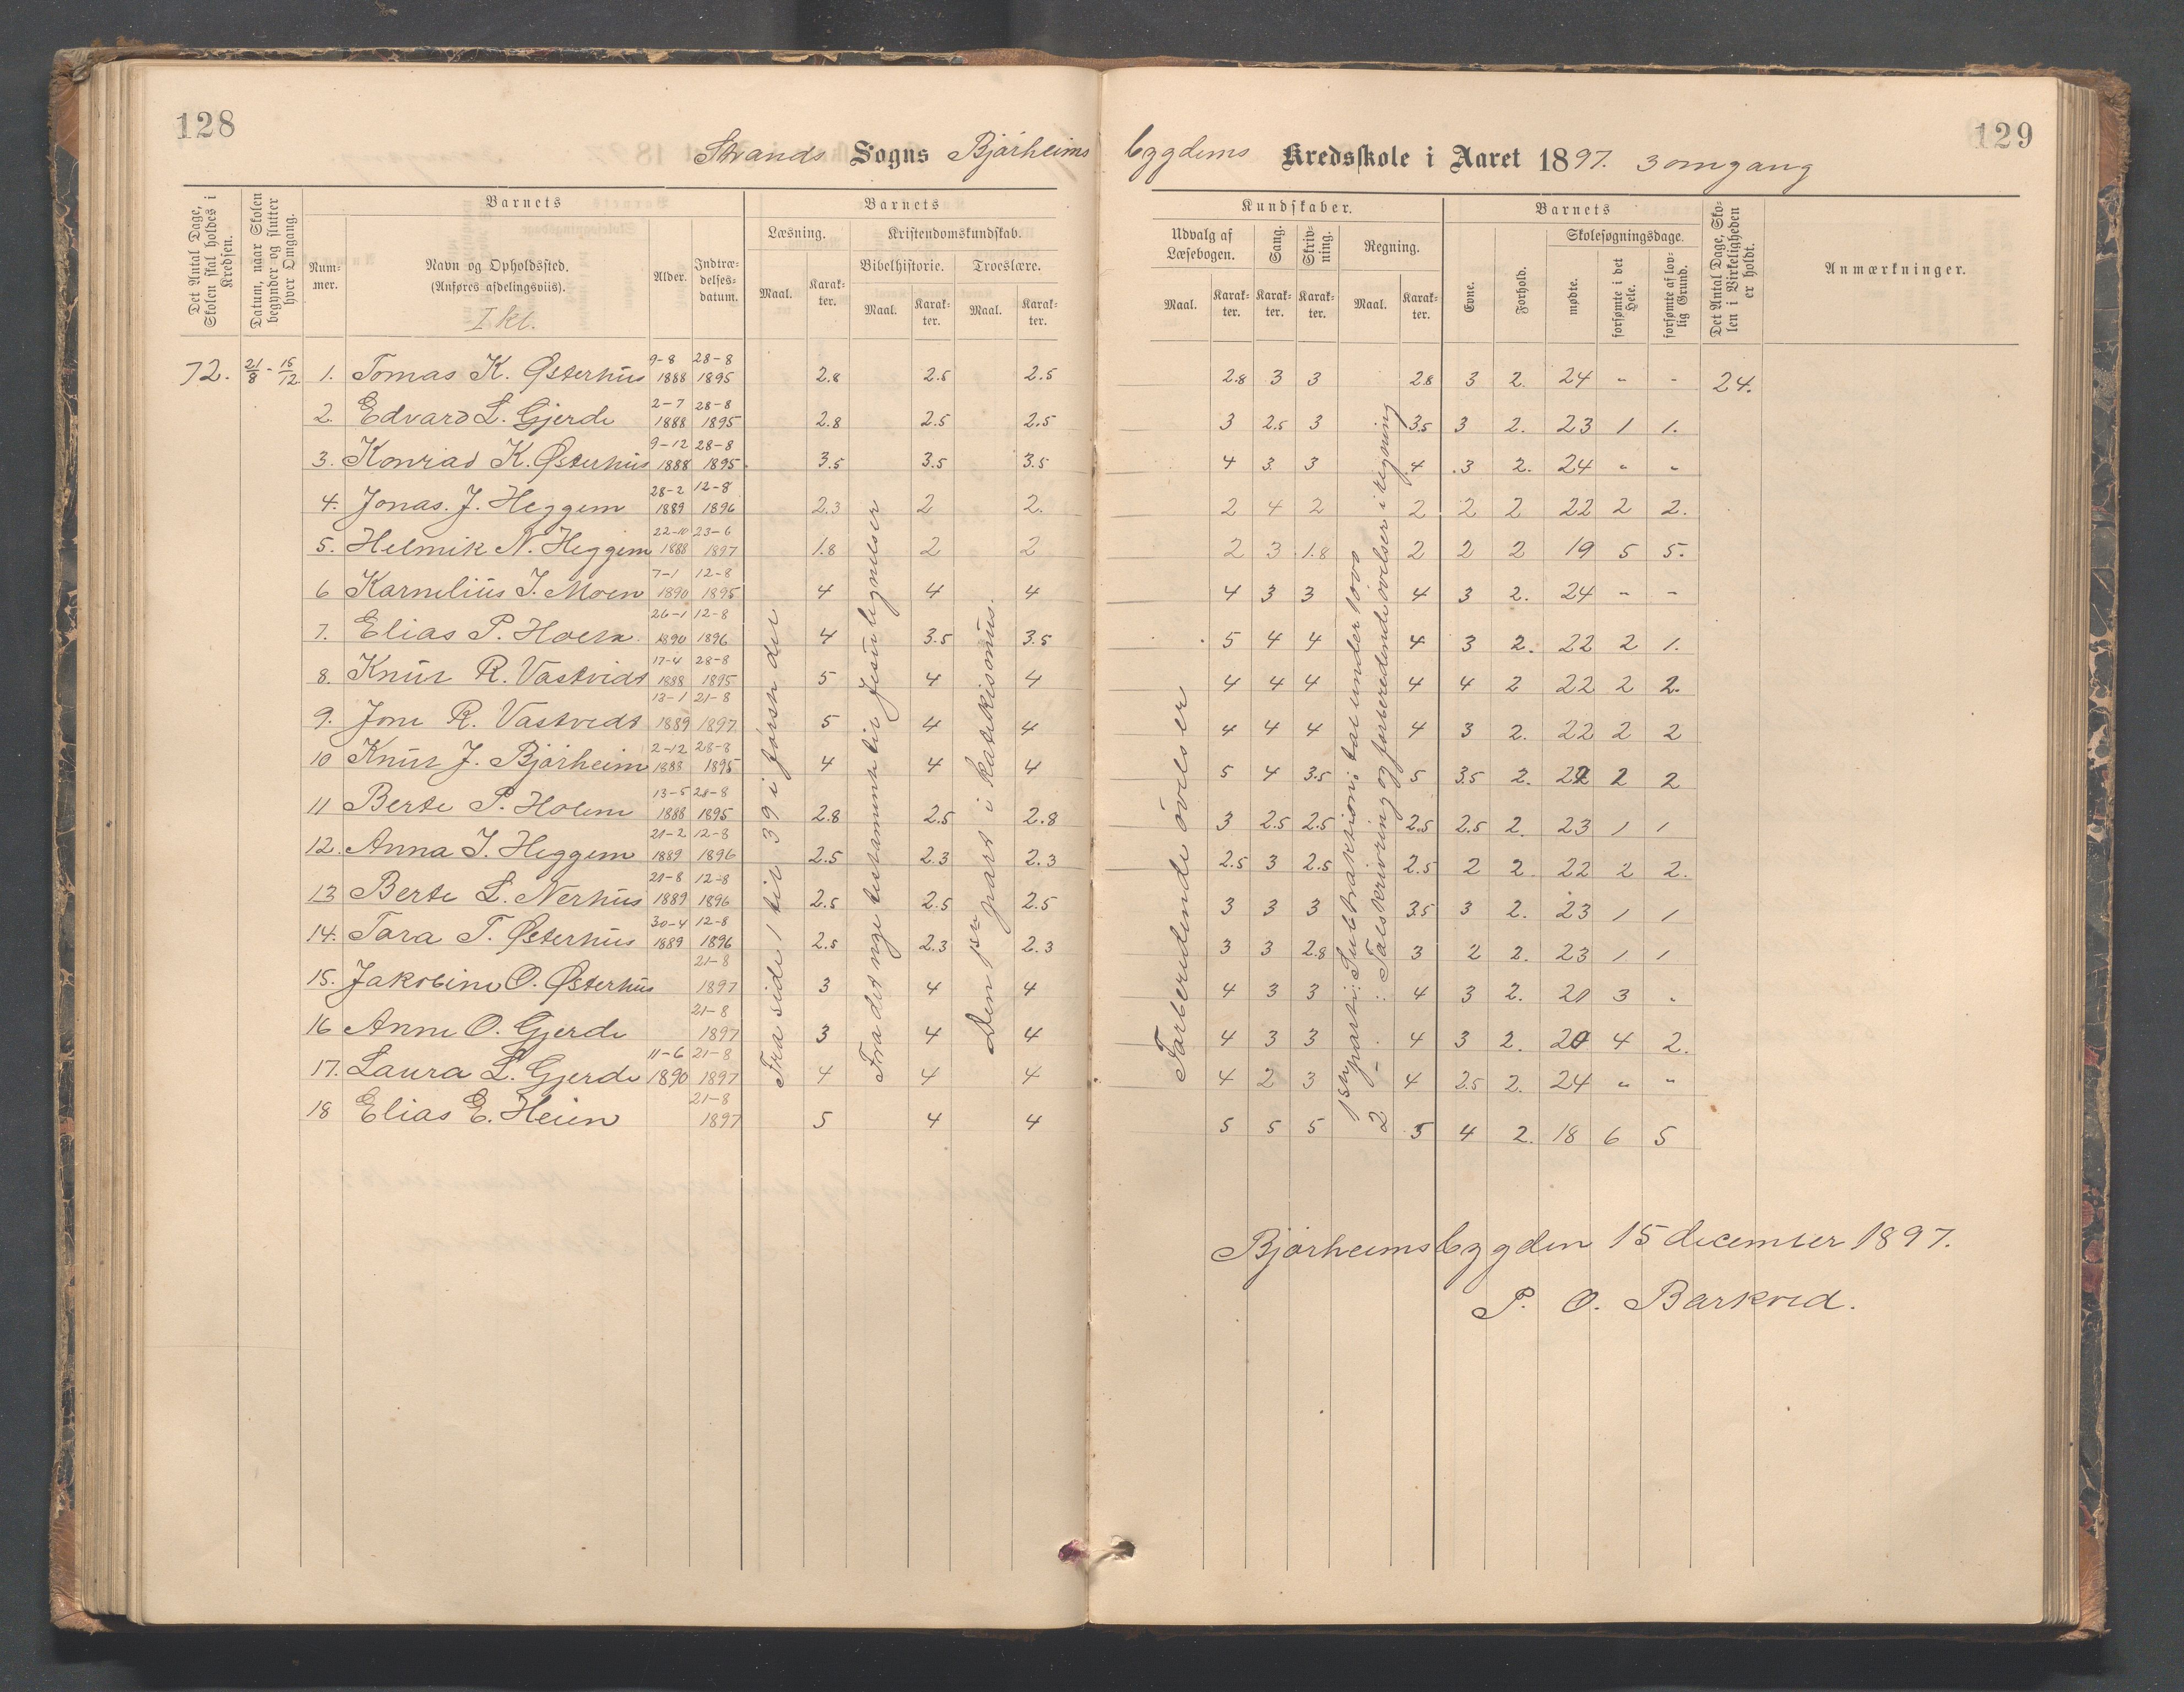 128
129
Strands Sogns Bjørheims bygdens Kredsskole i Aaret 1897. 3 omgang
Det Antal Dage, Skolen skal holdes i Kredsen.
Datum, naar Skolen begynder og slutter hver Omgang.
Barnets
Nummer.
Navn og Opholdssted. (Anføres afdelingsviis).
I kl.
Alder.
Indtrædelsesdatum.
Barnets
Læsning.
Maal.
Karakter.
Kristendomskundskab.
Bibelhistorie.
Maal.
Karakter.
Troeslære.
Maal.
Karakter.
Kundskaber.
Udvalg af Læsebogen.
Maal.
Karakter.
Sang.
Karakter.
Skrivning.
Karakter.
Regning.
Maal.
Karakter.
Barnets
Evne.
Forhold.
Skolesøgningsdage.
mødte.
forsømte i det Hele.
forsømte af lovlig Grund.
Det Antal Dage, Skolen i Virkeligheden er holdt.
Anmærkninger.
72. 21/8 - 15/12 1. Tomas K. Østerhus 9-8 1888 28-8 1895 2.8 2.5 2.5 2.8 3 3 2.8 3 2. 24 - - 24.
2. Edvard L. Gjerde 2-7 1888 28-8 1895 2.8 2.5 2.5 3 2.5 3 3.5 3 2. 23 1 1.
3. Konrad K. Østerhus 9-12 1888 28-8 1895. 3.5 3.5 3.5 4 3. 3 4 3 2. 24 " "
4. Jonas. J. Heggem 28-2 1889 12-8 1896 2.3 2 2. 2 4 2 2 2 2 22 2 2.
5. Helmik N. Heggem 22-10 1888 23-6 1897 1.8 2 2 2 3 1.8 2 2 2 19 5 5.
6 Karnelius I. Moen 7-1 1890 12-8 1895 4 4 4 4 3 3 4 3 2. 24 - -
7. Elias P. Holen 26-1 1890 12-8 1896 4 3.5 3.5 5 4 4 4 3 2. 22 2 1.
8. Knut R. Vastvidt 17-4 1888 28-8 1895 5 4 4 4 4 4 4 4 2 22 2 2.
9. Jone R. Vastvedt 13-1 1889 21-8 1897 5 4 4 4 4 4 4 3 2. 22 2 2
10 Knut J. Bjørheim 2-12 1888 28-8 1895 4 4 4 5 4 3.5 5 3.5 2. 22 2 2
11 Berte P. Holene 13-5 1888 28-8 1895 2.8 2.5 2.8 3 2.5 2.5 2.5 2.5 2. 23 1 1
12. Anna I. Heggem 21-2 1889 12-8 1896 2.5 2.3 2.3 2.5 3 2.5 2.5 2 2. 22 2 2.
13 Berte L. Nerhus 21-8 1889 12-8 1896 2.5 2.5 2.5 3 3 3 3.5 3 2. 23 1 1
14. Tara T. Østerhus 30-4 1889 12-8 1896 2.5 2.3 2.3 3 3 2.8 3 2 2. 23 1 1
15. Jakobine O. Østerhus 21-8 1897 3 4 4 4 3 3 4 3 2. 21 3 "
16 Anne O. Gjerde 21-8 1897 3 4 4 4 3 3 4 3 2. 20 4 2.
17. Laura L. Gjerde 11-6 1890 21-8 1897 4 4 4 4 2 3 4 2.5 2. 24 " "
18 Elias E. Heien 21-8 1897 5 4 4 5 5 5 5 4 2. 18 6 5
Fra side 1 til 39 i første del
Fra det nye testamente til Jesu lignelser
Den 1ste part i katekismus.
Forberedende øvelser
1ste parti: Subtraktion i tal under 1000
2 - : Talskrivning og forberedende øvelser i regning
Bjørheimsbygden 15 december 1897.
P. O. Barkved.